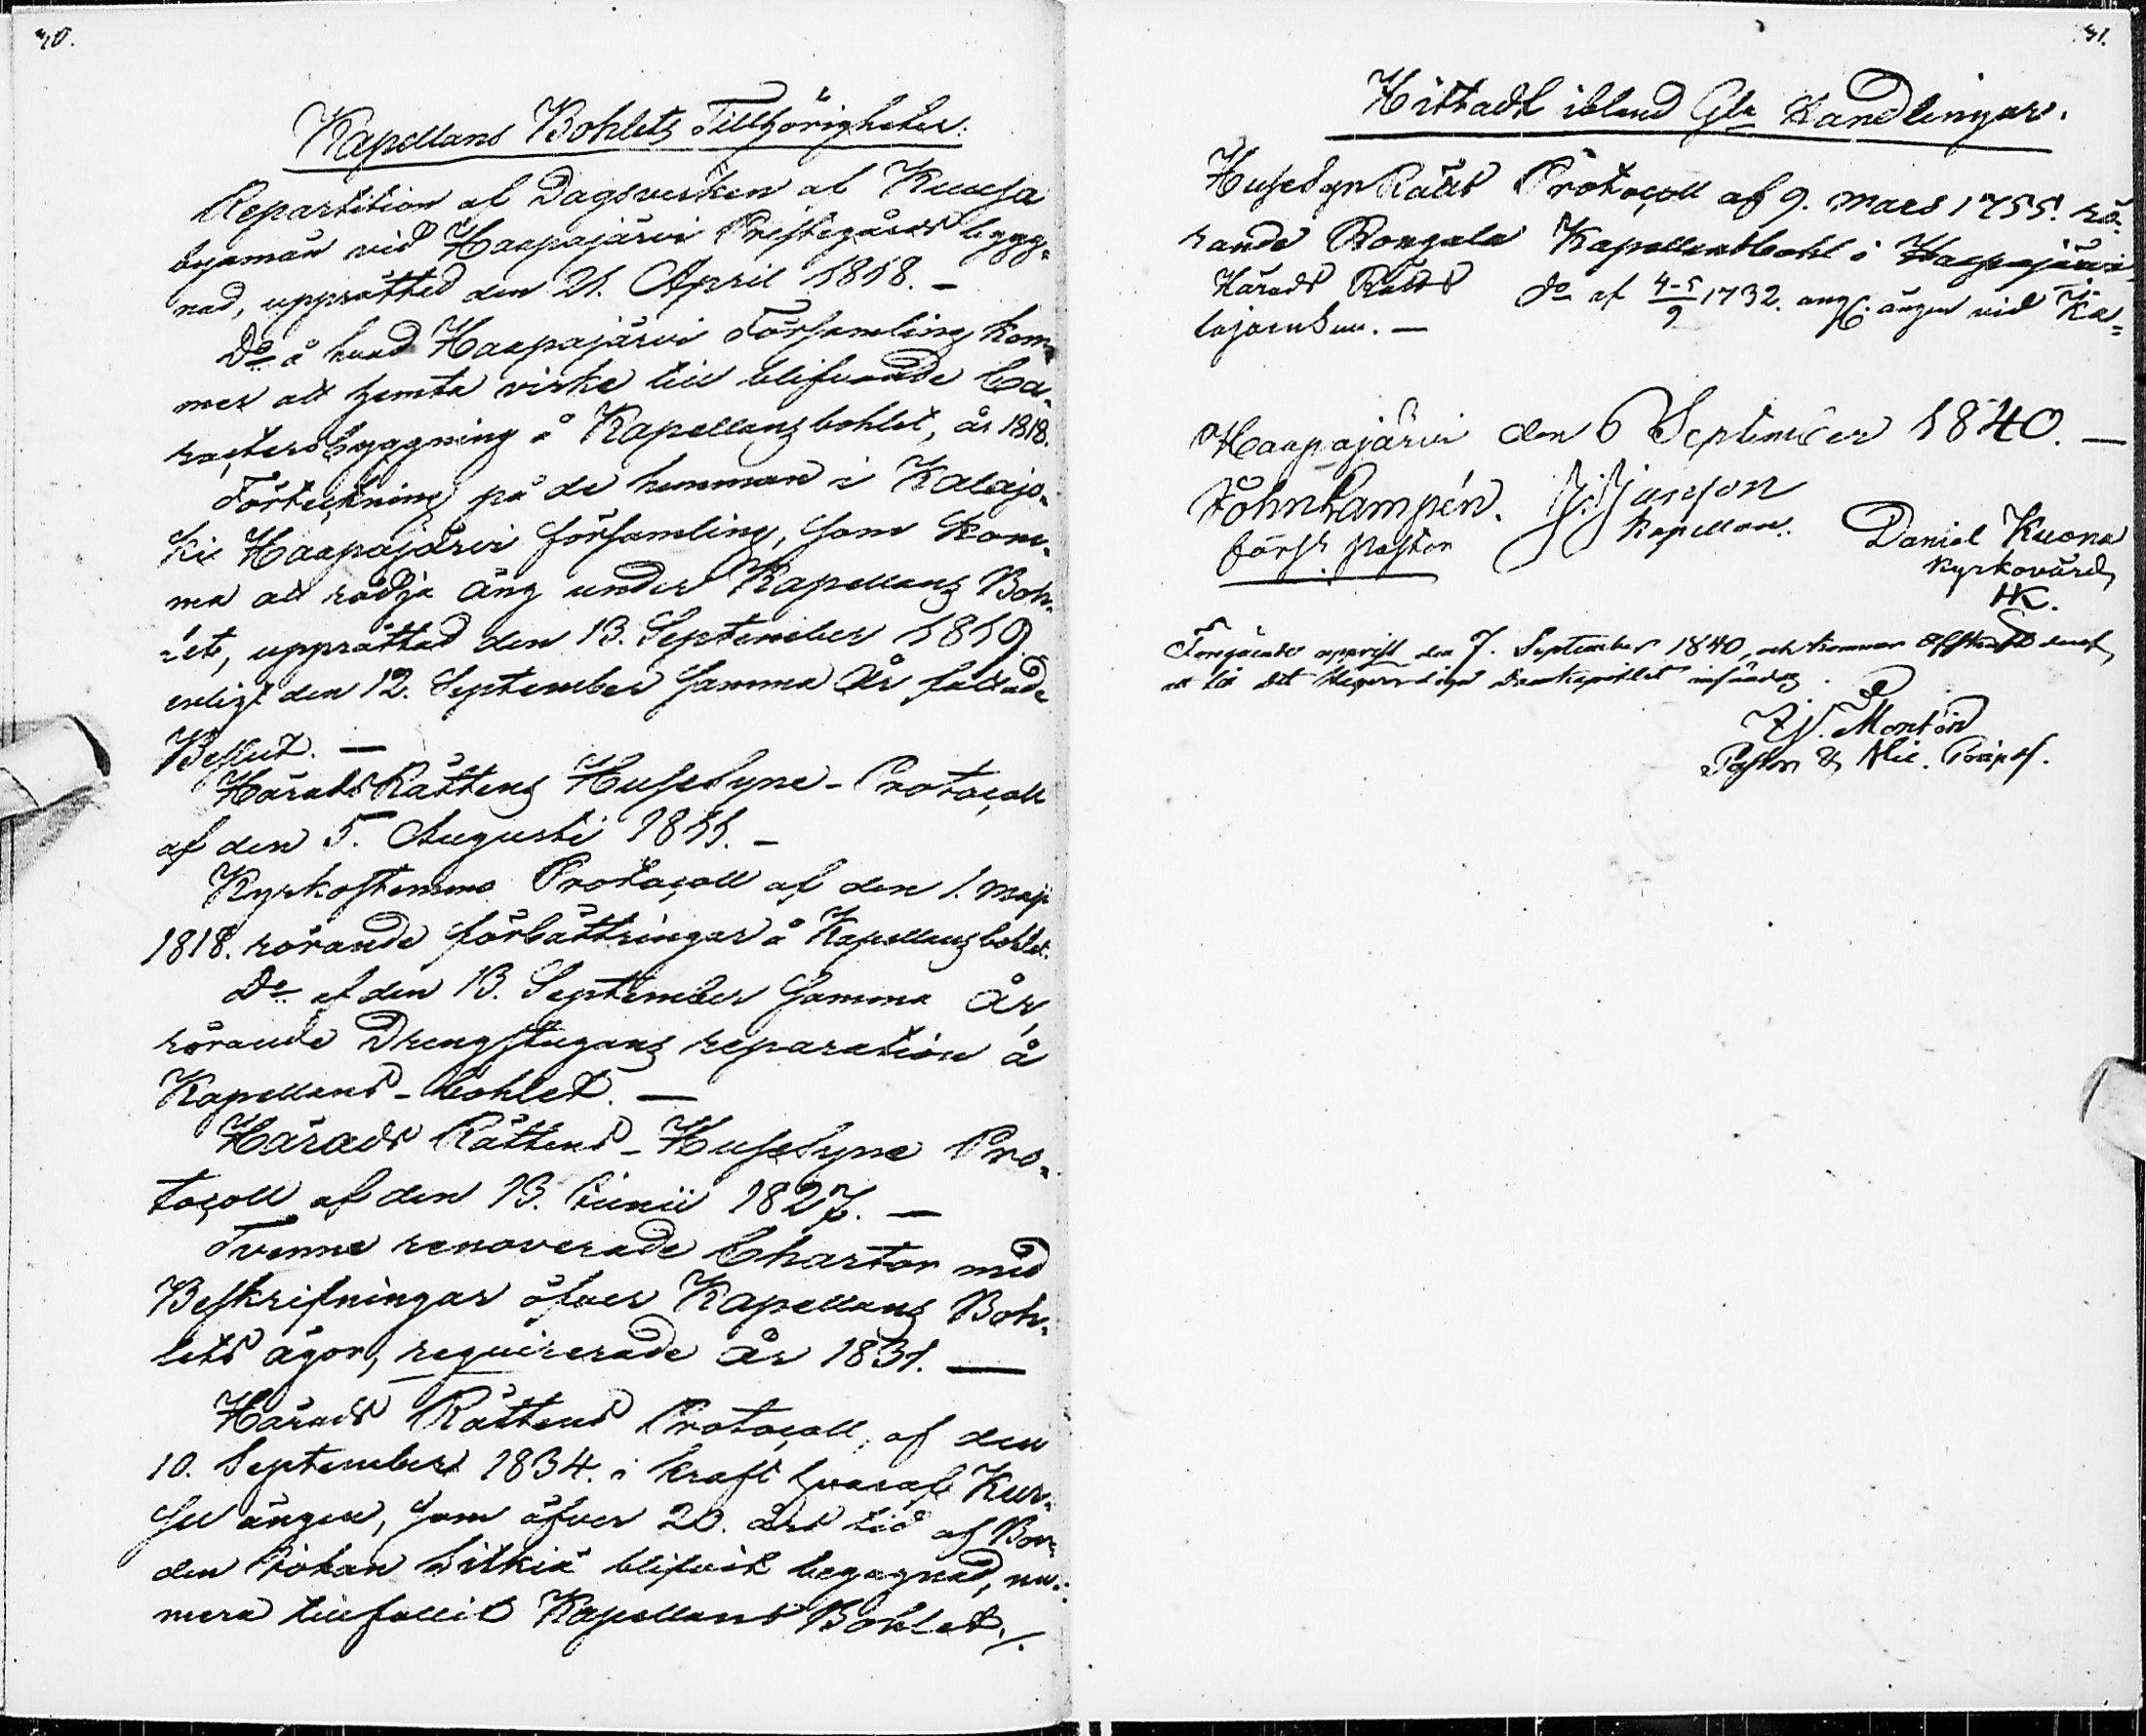 40.
Kapellans Bohlets Tillhörigheter.
Repartition af Dagsverken af Kuusa
byamän vid Haapajärvi Prestegårds bygg-
nad, upprättad den 21. April 1818. —
Do å hvad Haapajärvi Församling kom-
mer att hemta virke till blifvande Ca-
racters byggning å Kapellans bohlet, år 1818.
Förteckning på de hemman i Kalajo-
ki Haapajärvi församling, som kom-
ma att rödja äng under Kapellans Boh-
let, upprättad den 13. September 1819.
enligt den 12. September samma År fattade
Beslut. —
Härads Rättens Husesyne-Protocoll
af den 5. Augusti 1811. —
Kyrkostemmo Protocoll af den 1. Maji
1818. rörande förbättringar å Kapellans bohlet.
Do af den 13. September samma År,
rörande Drengstugans reparation å
Kapellans-bohlet. —
Härads Rättens-Husesyne Pro-
tocoll af den 13. Junii 1827. —
Tvenne renoverade Chartor med
Beskrifningar öfver Kapellans Boh-
lets ägor, requirerade År 1831. —
Härads Rättens Protocoll, af den
10. September 1834. i kraft hvaraf Kur-
su ängen, som öfver 20. års tid af Bon-
den Johan Pitkiä blifvit begagnad, nu-
mera tillfallit Kapellans Bohlet./.
41.
Hittadt ibland Gla Handlingar.
Husesyn Rätts Protocoll af 9. Mars 1755. rö-
rande Rongala Kapellans bohl i Haapajärvi,
Härads Rätts do af 4-5/9 1732. ang. ängen vid Ka-
lajaensuu. —
Haapajärvi den 6 September 1840. —
John Lampén.
förs. Pastor
Kapellan.
Daniel Kuona
Kyrkovärd,
HK.
Föregående den 7. September 1840, och kommer
att till det Högvördiga Domkapitlet insändas.
Montin
Pastor &